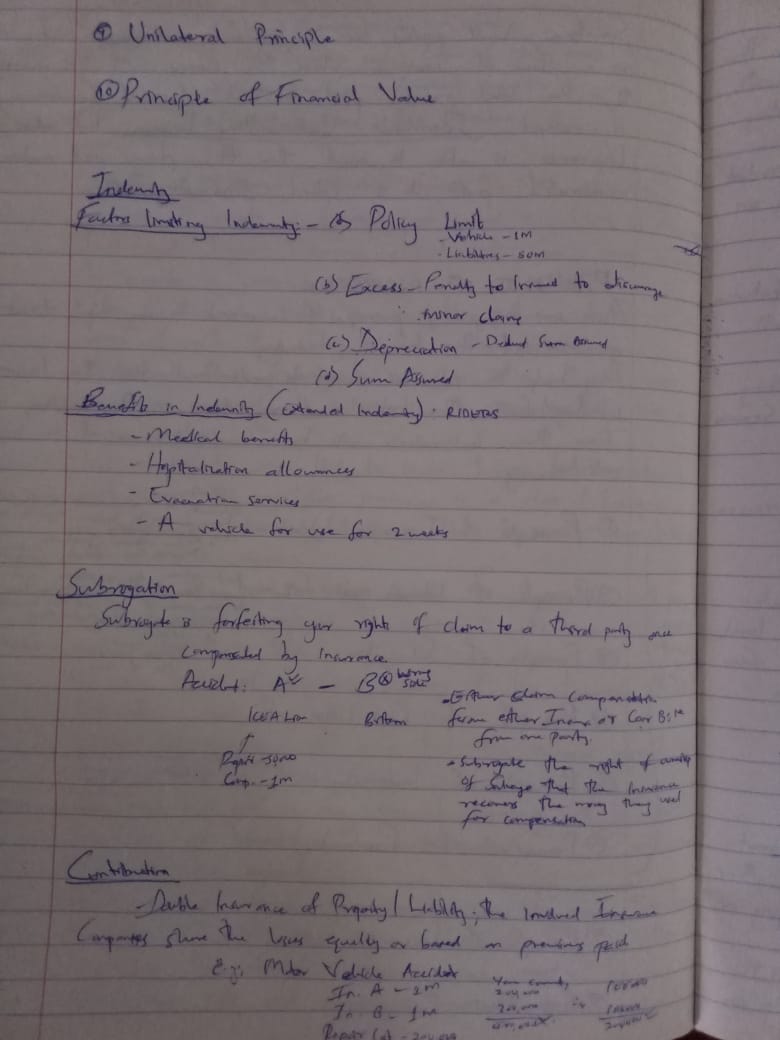 ⑨ Unilateral Principle
⑩ Principle of Financial Value
Indemnity
Factors limiting Indemnity: - (a) Policy Limit
- Vehicle - 1M
- Liabilities - 50M
(b) Excess - Penalty to Insured to discourage
minor claims
(c) Depreciation - Deduct Sum Assured
(d) Sum Assured
Benefits in Indemnity (Extended Indemnity). RIDERS
- Medical benefits
- Hospitalization allowances
- Evacuation services
- A vehicle for use for 2 weeks
Subrogation
Subrogate is forfeiting your right of claim to a third party once
compensated by Insurance.
Accident: A - B wrong side
ICEA Lion Britam
Comp. - 1m
• Either claim compensation
from either Insurer or Car B
from one party.
• Subrogate the right of
of Salvage that the Insurance
recovers the money they used
for compensation
Contribution
- Double Insurance of Property / Liability; the Involved Insurance
Companies share the losses equally or based on premiums paid
E.g; Motor Vehicle Accident
In. A - 2m
In. B - 1m
Repair - 200,000
200,000